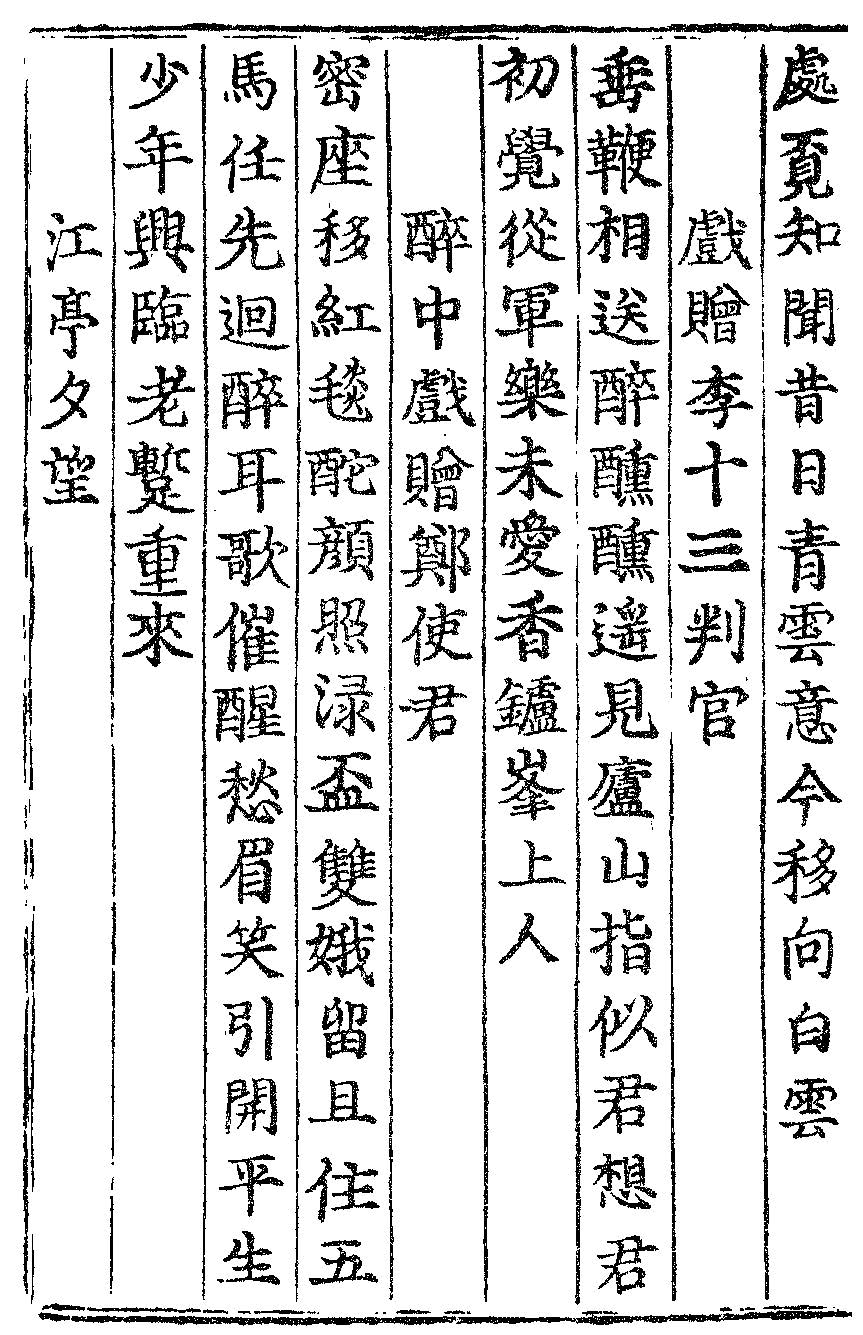 處覔知聞昔日青雲意今移向白雲
戲贈李十三判官
垂鞭相送醉醺醺遥見廬山指似君想君
初覺從軍樂未愛香鑪峯上人
醉中戲贈鄭使君
密座移紅毯酡顔照渌盃雙娥留且住五
馬任先迴醉耳歌催醒愁眉笑引開平生
少年興臨老蹔重來
江亭夕望